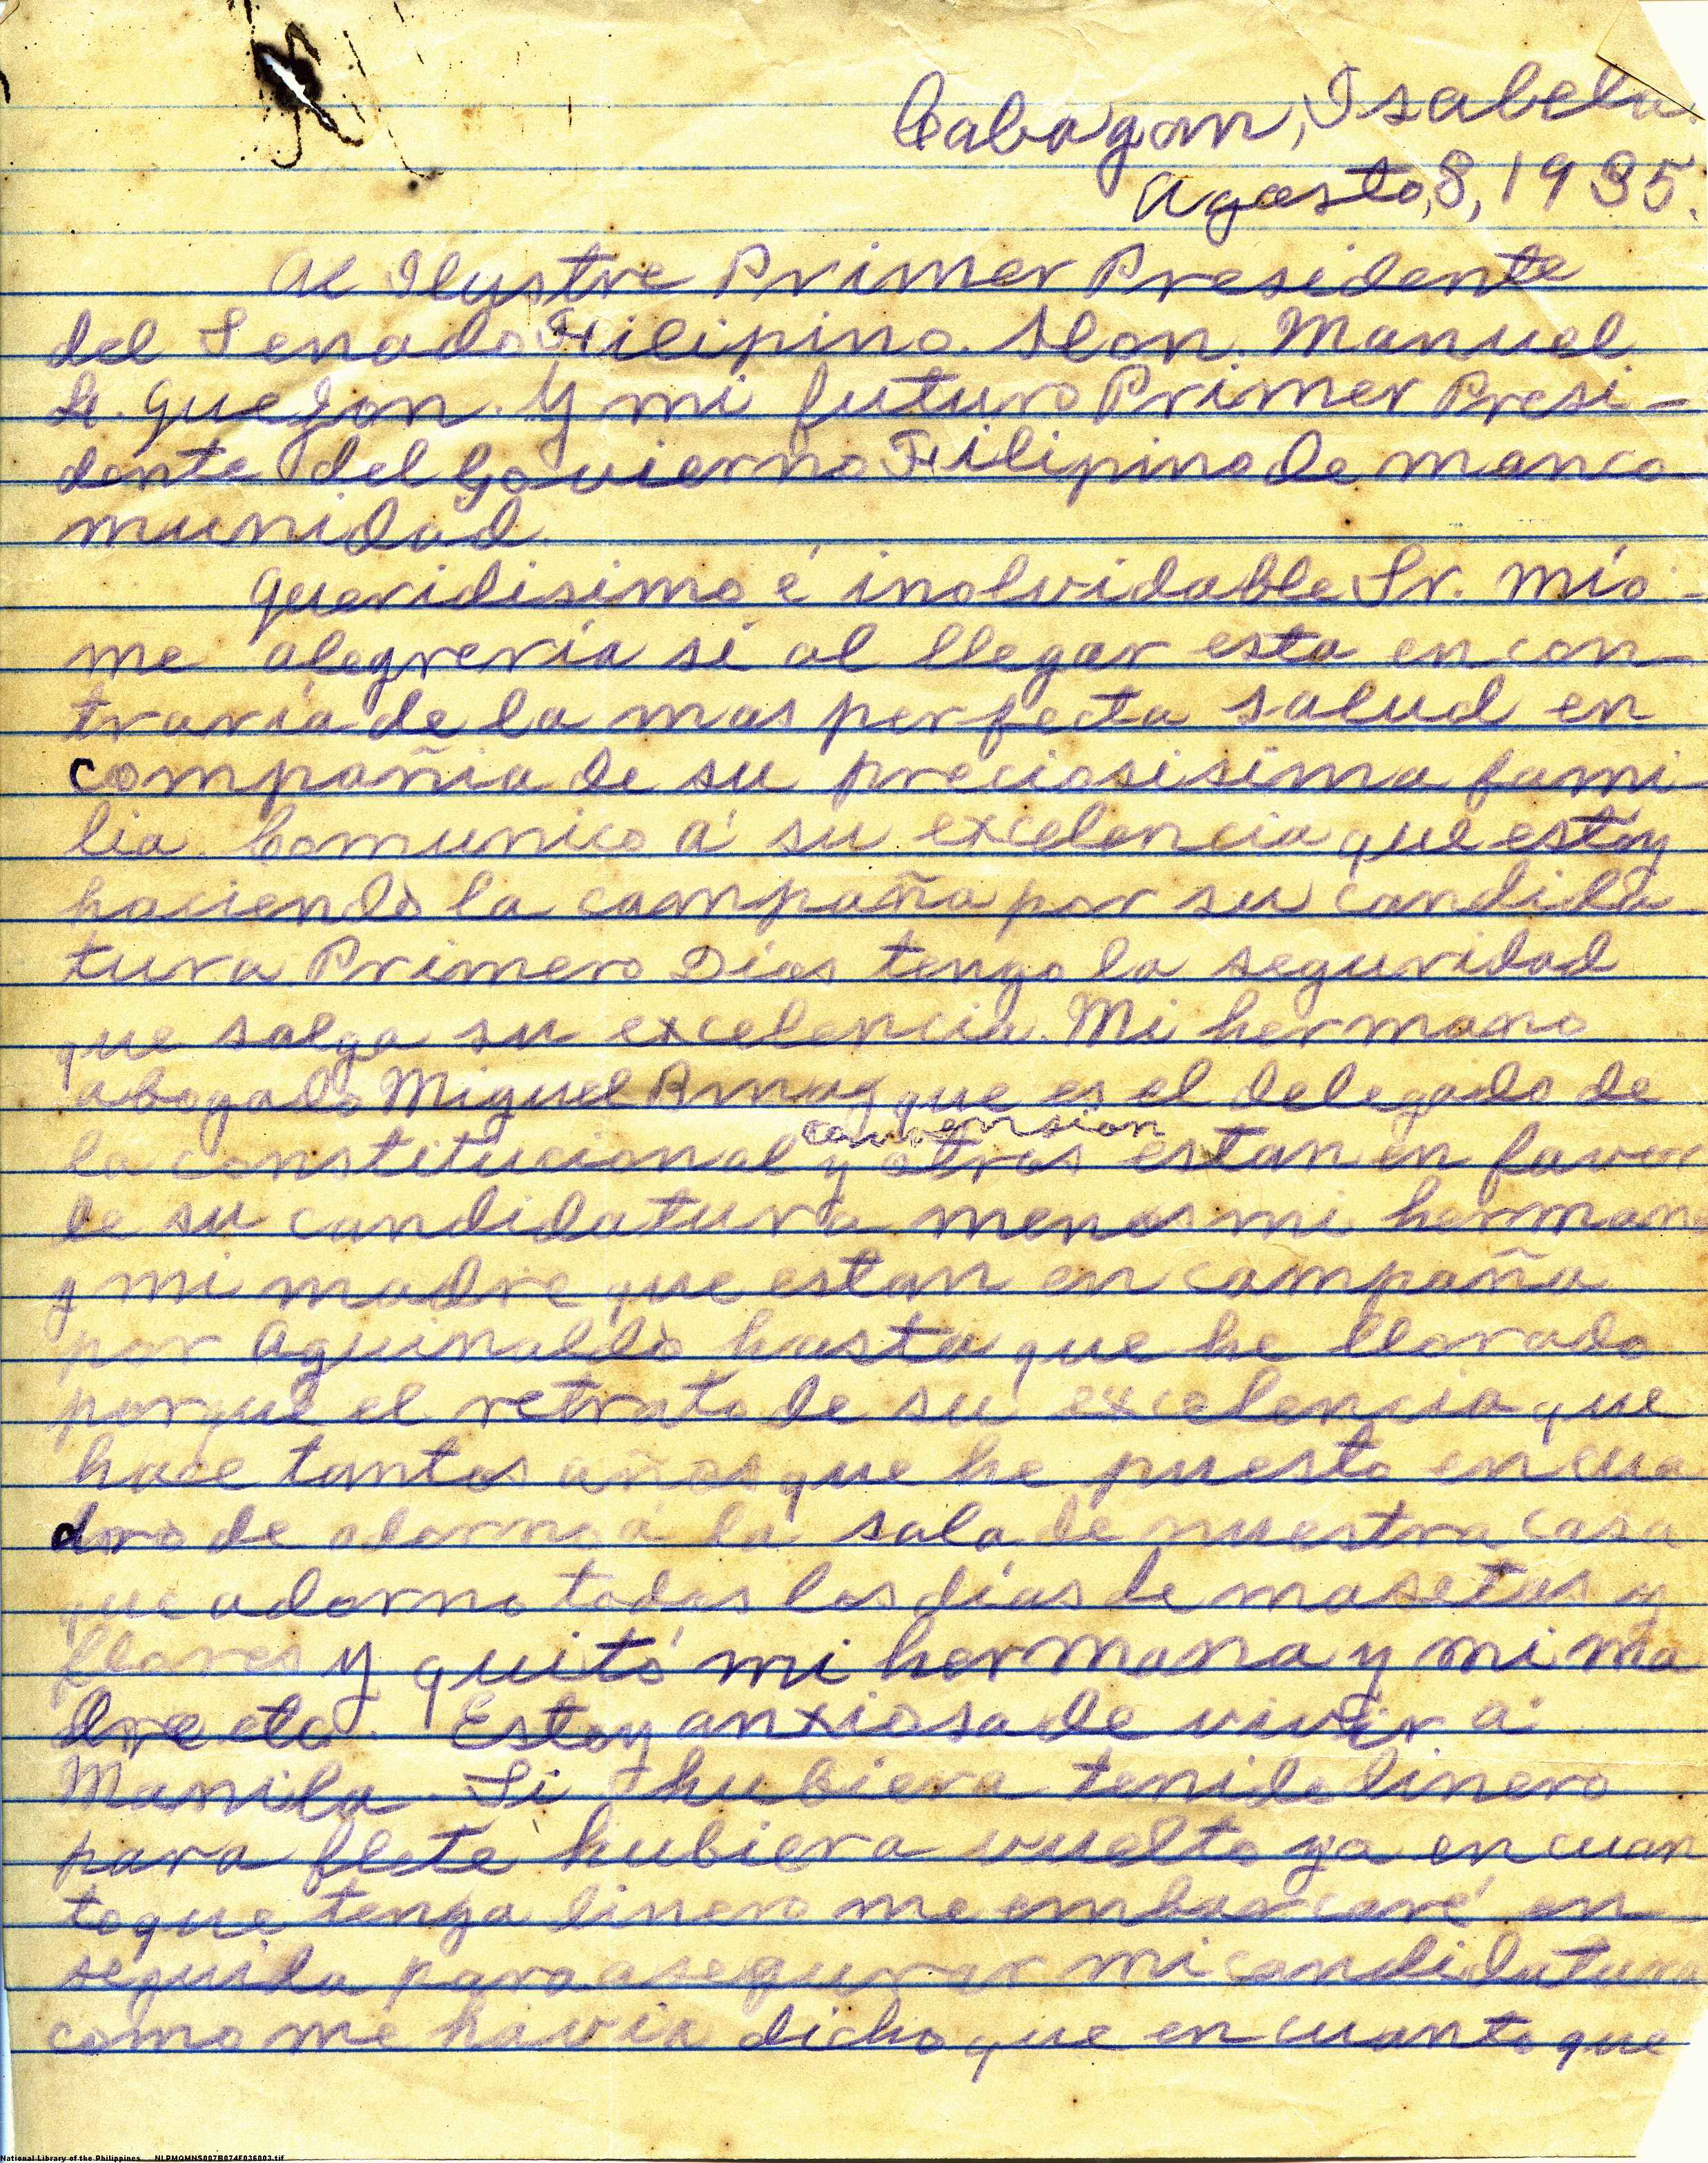 Cabagan, Isabela.
Agosto, 8, 1935.
Al Ilustre Primer Presidente
del Senado Filipino. Hon. Manuel
L. Quezon. Y mi futuro Primer Presi-
dente del Govierno Filipino de manco
munidad.
Queridisimo é inolvidable Sr. mío -
me alegrería si al llegar esta encon-
traría de la mas perfecta salud en
compañia de su preciosisima fami-
lia. Comunico á su excelencia que estoy
haciendo la campaña por su candida
tura Primero Dios tengo la seguridad
que salga su excelencia. Mi hermano
abogado Miguel que es el delegado de
convension
la constitucional y otros estan en favor
de su candidatura menos mi hermana
y mi madre que estan en campaña
por Aguinaldo hasta que he llorado
porque el retrato de su excelencia que
hace tantos años que he puesto en cua
dro de adorno á la sala de nuestra casa
que adorno todos los días de masetas y
flores y quitó mi hermana y mi ma
dre etc. Estoy anxiosa de vivir á
Manila. Si hubiera tenido dinero
para flete hubiera vuelto ya en cuan
to que tenga dinero me embarcaré en-
seguida para asegurar mi candidatura
como me havia dicho que en cuanto que
National Library of the Philippines NLPMQMNS007B074F036003.tif